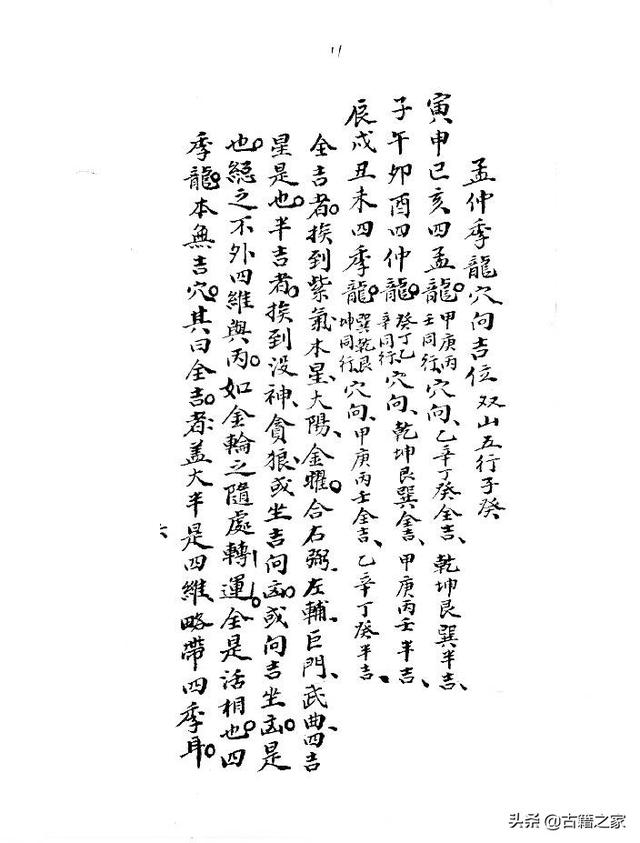 孟仲季龍穴向吉位双山五行子癸
寅申巳亥四孟龍甲庚丙壬同行穴向乙辛丁癸全吉、乾坤艮巽半吉、
子午卯酉四仲龍癸丁乙辛同行穴向、乾坤艮巽全吉、甲庚丙壬半吉、
辰戌丑未四季龍巽乾艮坤同行穴向、甲庚丙壬全吉、乙辛丁癸半吉、
全吉者。挨到紫氣木星、大陽、金曜。合右弼、左輔、巨門、武曲四吉
星是也。半吉者。挨到没神、貪狼、或坐吉向凶。或向吉坐凶。是
也。總之不外四維與丙。如金輪之隨處轉運。全是活相也。四
季龍。本無吉穴。其曰全吉者。蓋大半是四維略帶四季耳。
六
头条 @古籍之家